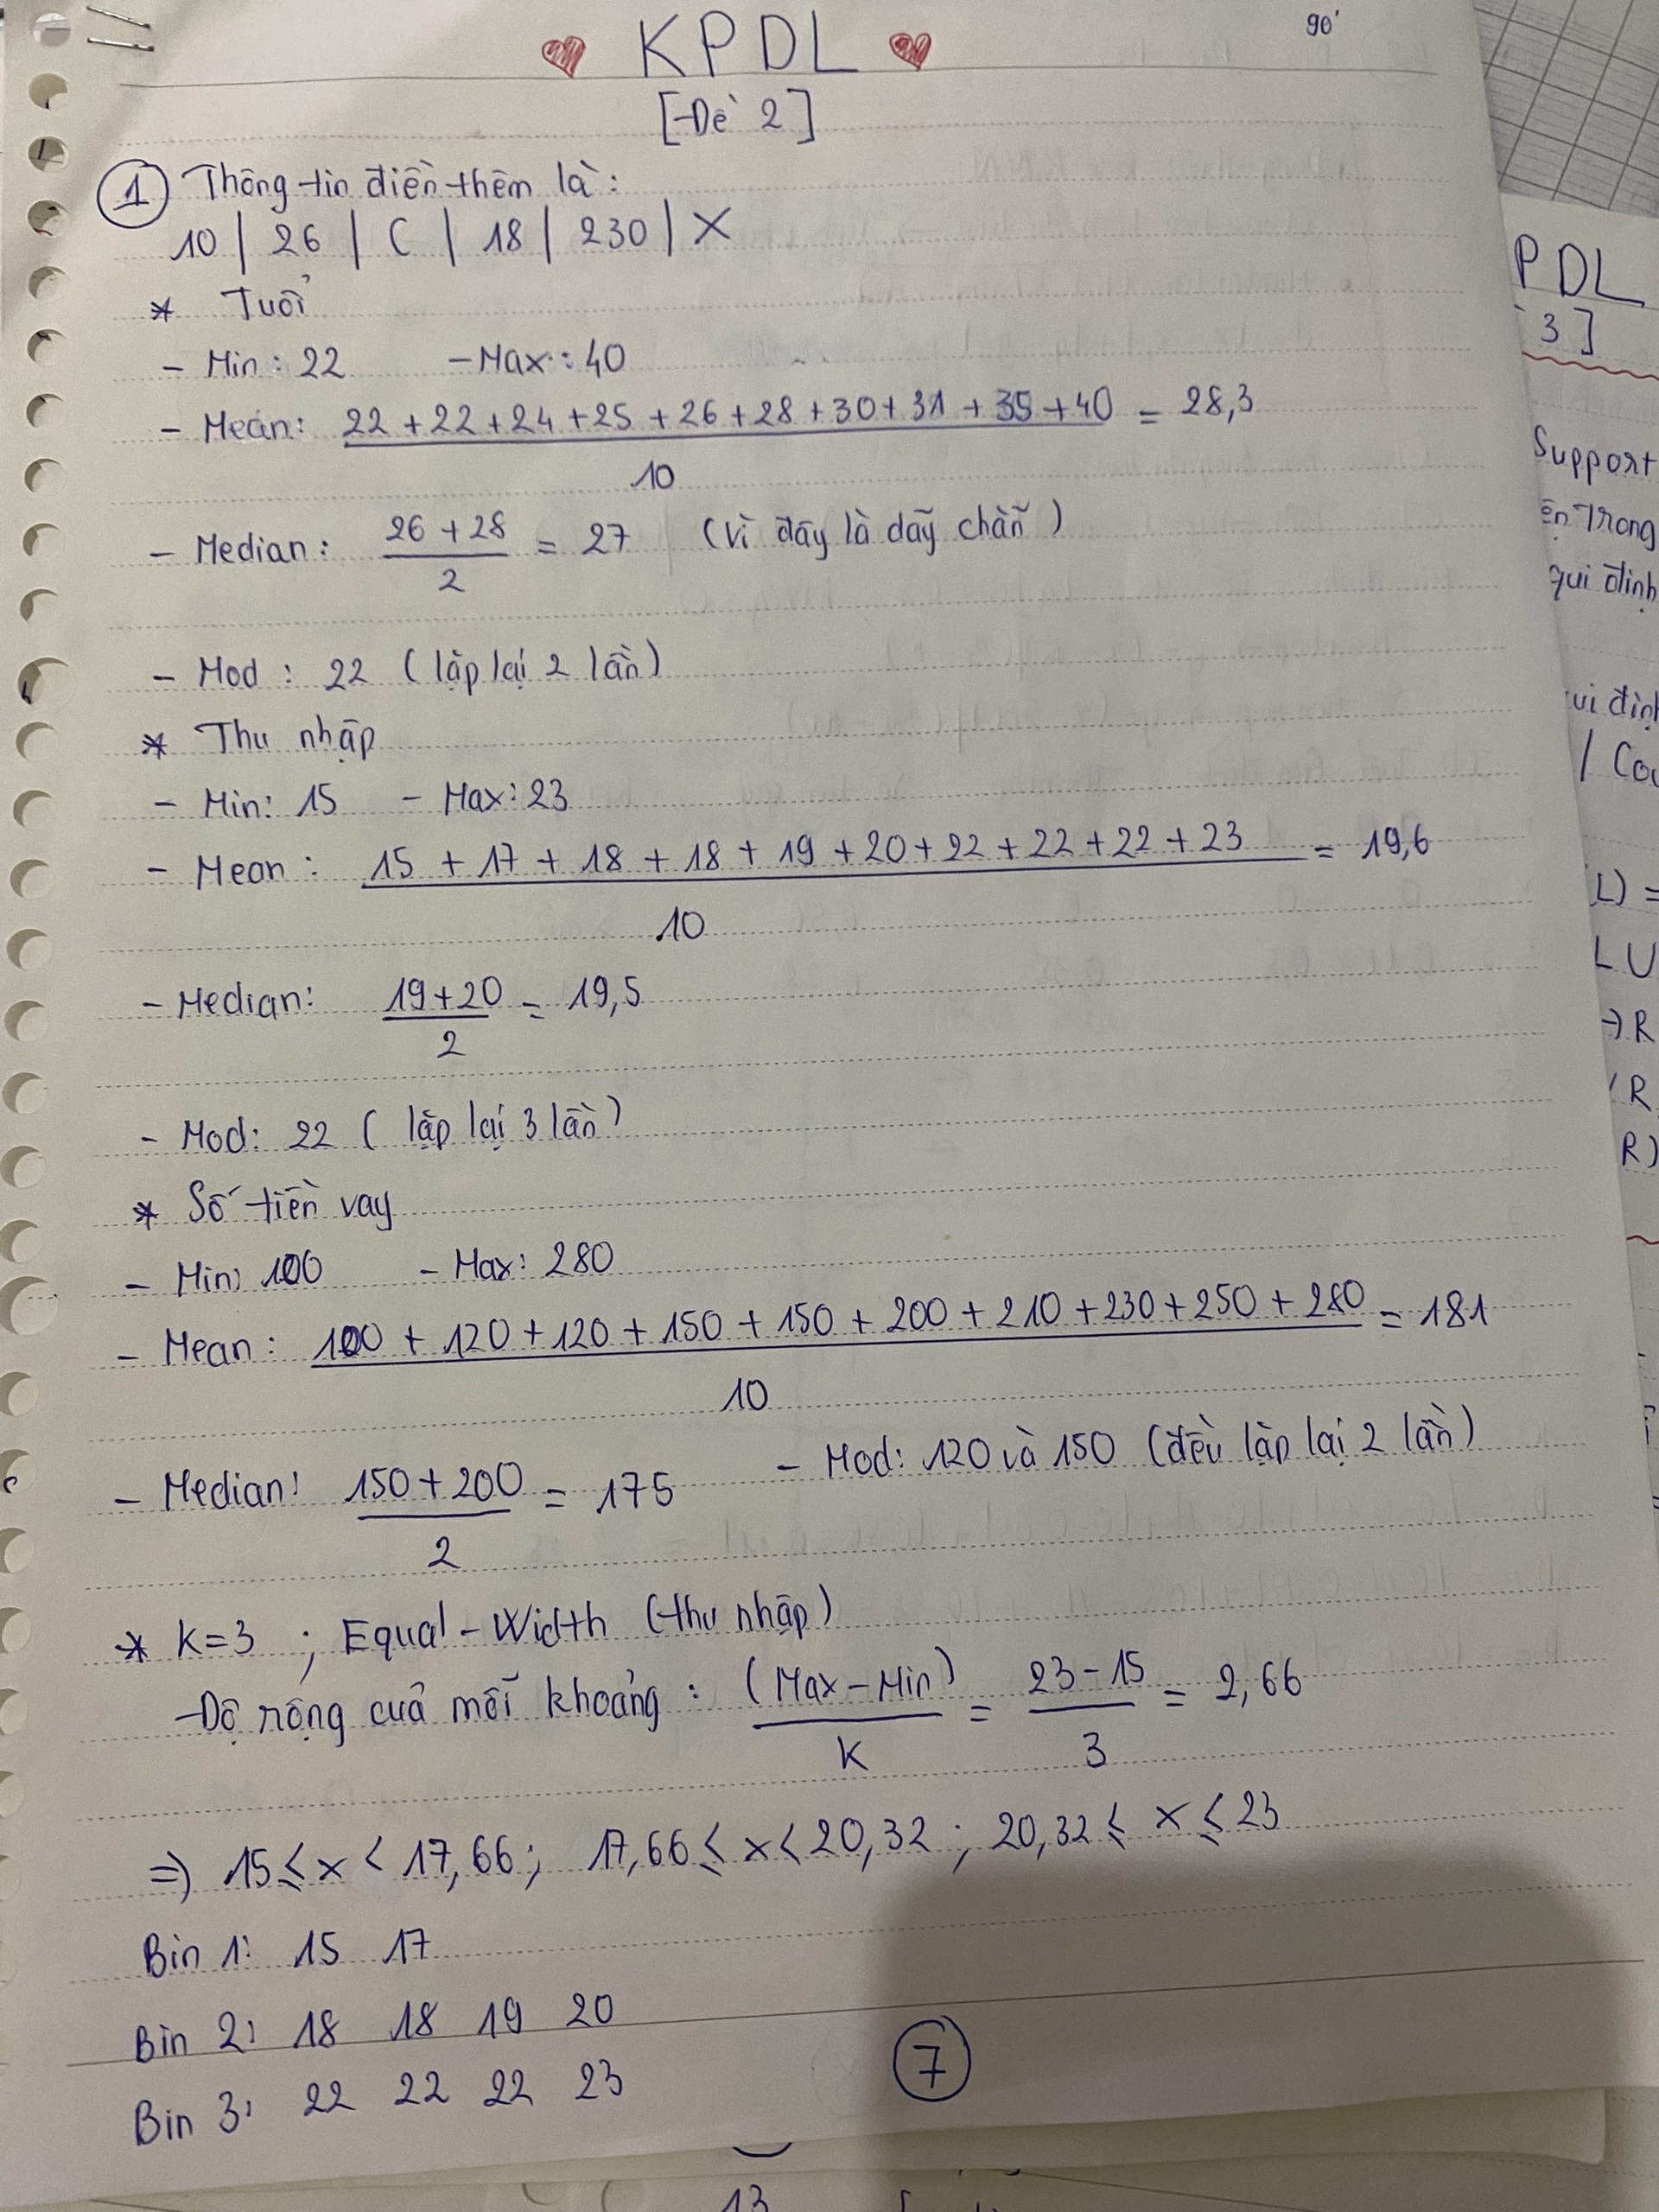 KPDL
90'
[Đề 2]
① Thông tin điền thêm là:
10 | 26 | C | 18 | 230 | X
* Tuổi
- Min: 22 - Max: 40
- Mean: 22 + 22 + 24 + 25 + 26 + 28 + 30 + 31 + 35 + 40 = 28,3
10
- Median: 26 + 28 = 27 (Vì đây là dãy chẵn)
2
- Mod: 22 (lặp lại 2 lần)
* Thu nhập
- Min: 15 - Max: 23
- Mean: 15 + 17 + 18 + 18 + 19 + 20 + 22 + 22 + 22 + 23 = 19,6
10
- Median: 19 + 20 = 19,5
2
- Mod: 22 (lặp lại 3 lần)
* Số tiền vay
- Min: 100 - Max: 280
- Mean: 100 + 120 + 120 + 150 + 150 + 200 + 210 + 230 + 250 + 280 = 181
10
- Median: 150 + 200 = 175 - Mod: 120 và 150 (đều lặp lại 2 lần)
2
* K=3 ; Equal-Width (thu nhập)
- Độ rộng của mỗi khoảng: (Max - Min) = 23 - 15 = 2,66
K 3
=> 15 ≤ x < 17,66; 17,66 ≤ x < 20,32; 20,32 ≤ x ≤ 23
Bin 1: 15 17
Bin 2: 18 18 19 20
Bin 3: 22 22 22 23
⑦
PDL
3]
Support
Trong
qui định
L) =
L U
→ R
R
R)
13